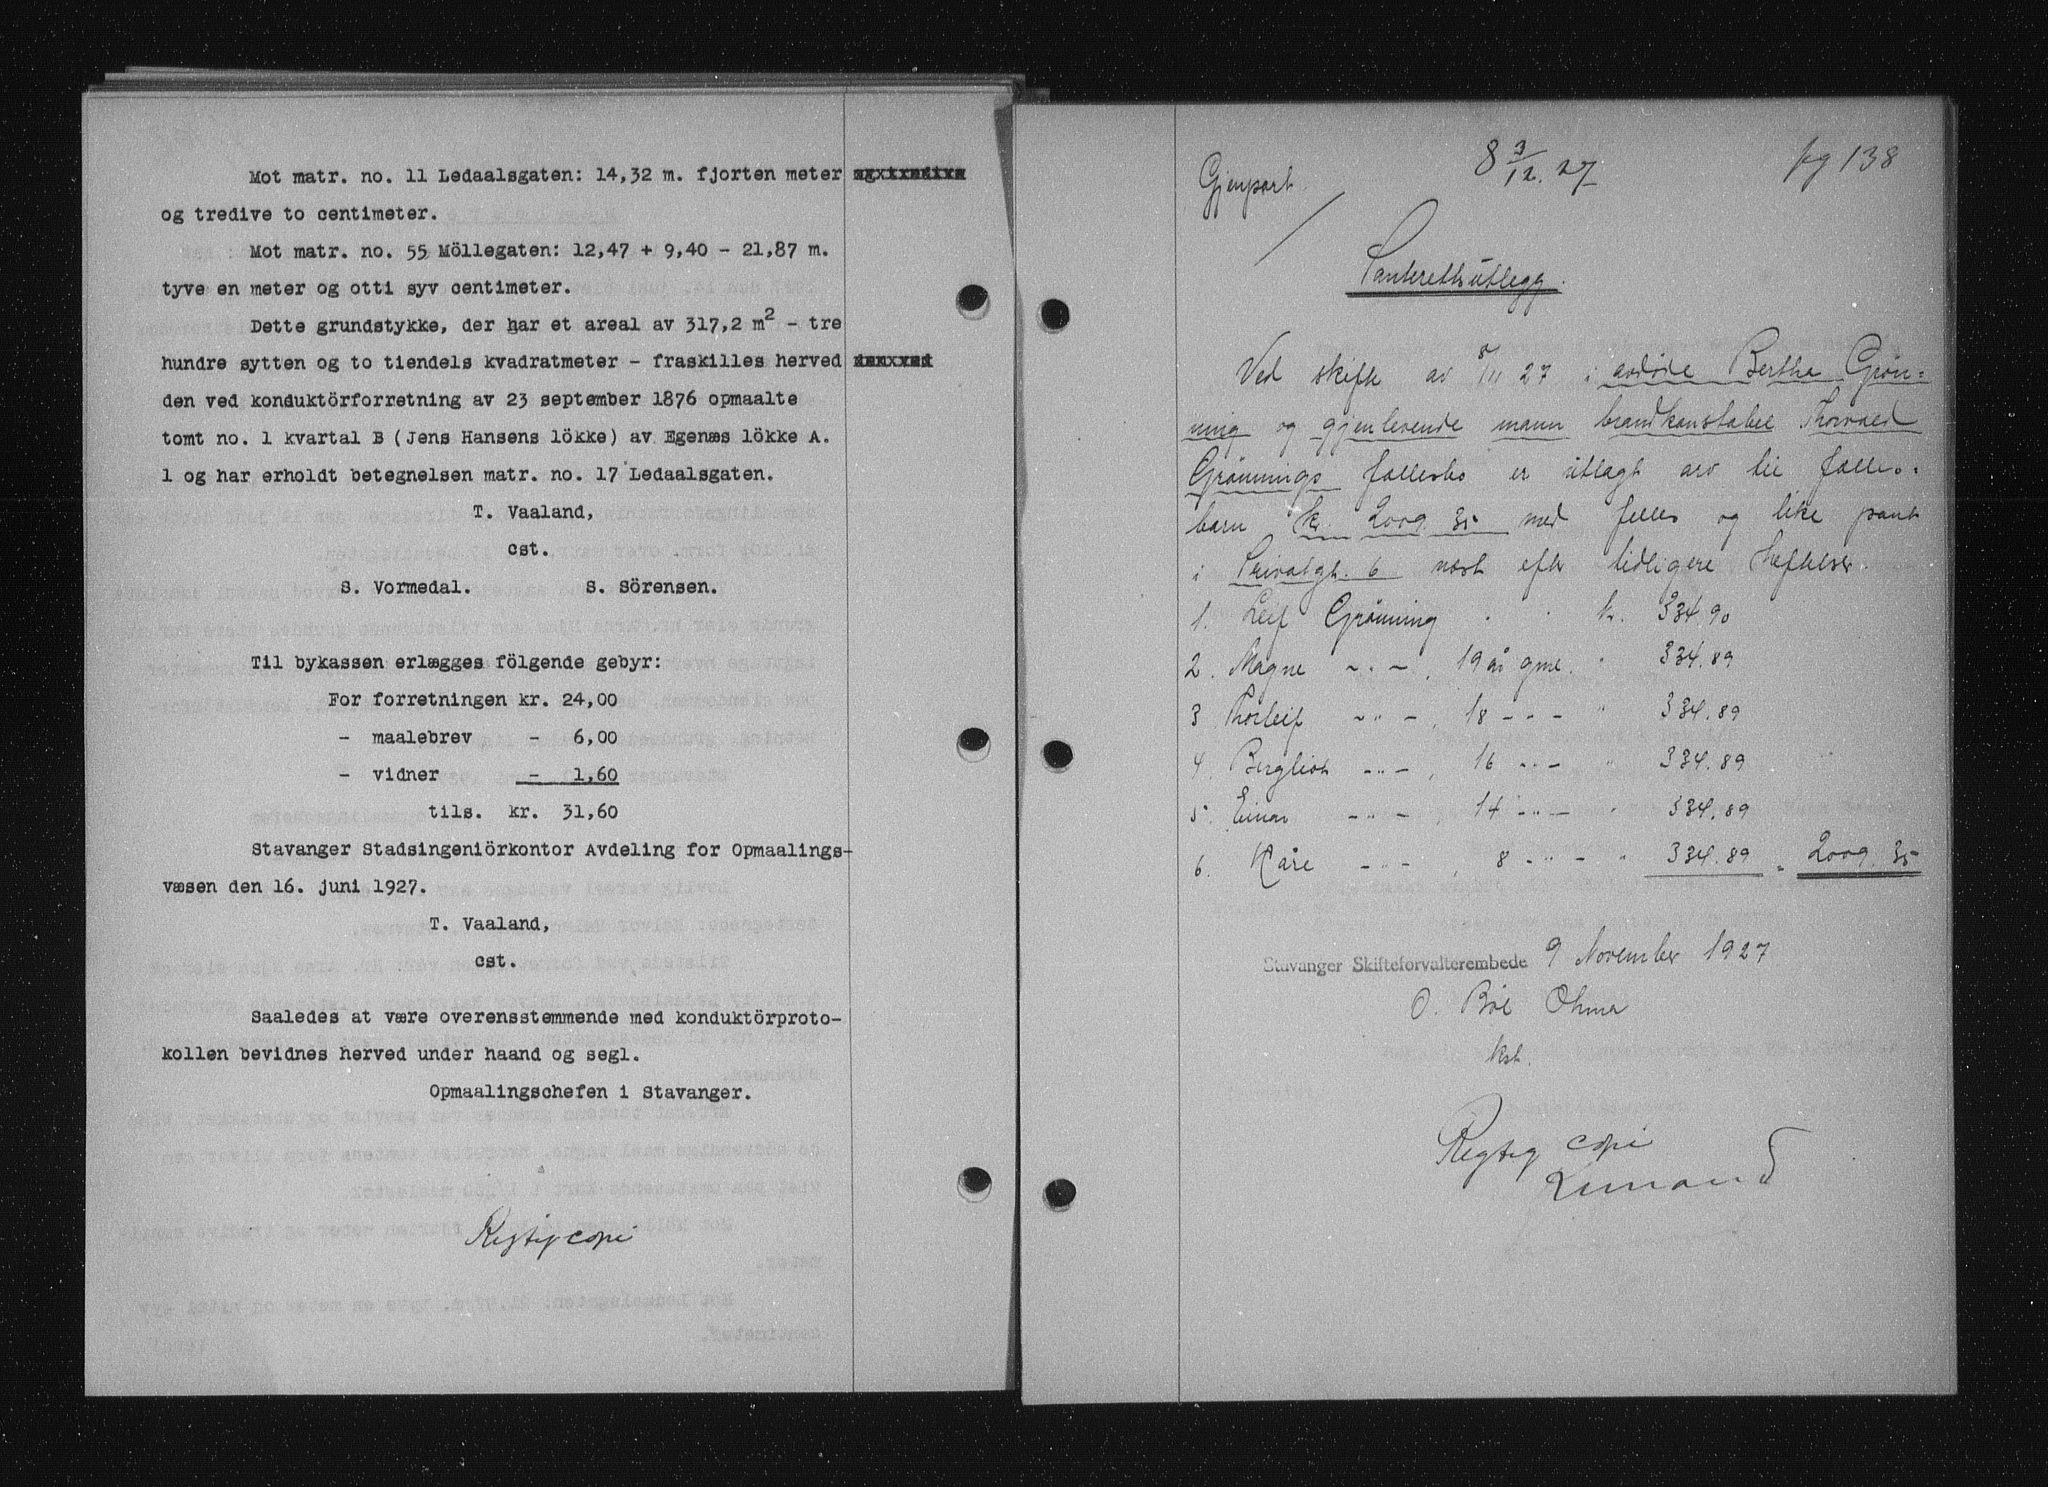 Mot matr. no. 11 Ledaalsgaten: 14,32 m. fjorten meter
og tredive to centimeter.
Mot matr. no. 55 Möllegaten: 12,47 + 9,40 - 21,87 m.
tyve en meter og otti syv centimeter.
Dette grundstykke, der har et areal av 317,2 m2 - tre
hundre sytten og to tiendels kvadratmeter - fraskilles herved
den ved konduktörforretning av 23 september 1876 opmaalte
tomt no. 1 kvartal B (Jens Hansens lökke) av Egenæs lökke A.
1 og har erholdt betegnelsen matr. no. 17 Ledaalsgaten.
T. Vaaland,
cst.
S. Vormedal. S. Sörensen.
Til bykassen erlægges fölgende gebyr:
For forretningen kr. 24,00
- maalebrev - 6,00
- vidner - 1,60
tils. kr. 31,60
Stavanger Stadsingeniörkontor Avdeling for Opmaalings-
væsen den 16. juni 1927.
T. Vaaland,
cst.
Saaledes at være overensstemmende med konduktörproto-
kollen bevidnes herved under haand og segl.
Opmaalingschefen i Stavanger.
Rigtig copi
8 3/12. 27 pg 138
Gjenpart.
Panterettsutlegg.
Ved skifte av 8/11 27 i avdöde Bertha Grøn-
ning og gjenlevende mann brandkonstabel Thorvald
Grønnings fællesbo er utlagt arv til fælles-
barn kr. 2009.35 med felles og like pant
i Privatgt. 6 næst efter tidligere heftelser.
1. Leif Grønning " kr. 334,90
2. Magne - " - , 19 år gml. " 334.89
3 Thorleif - " - , 18 - " - " 334.89
4. Bergliot - " - , 16 - " - " 334.89
5. Einar - " - , 14 - " - " 334.89
6. Kåre - " - , 8 - " - " 334.89 = 2009.35
Stavanger Skifteforvalterembede 9 November 1927
O. Böe
kst.
Rigtig copi